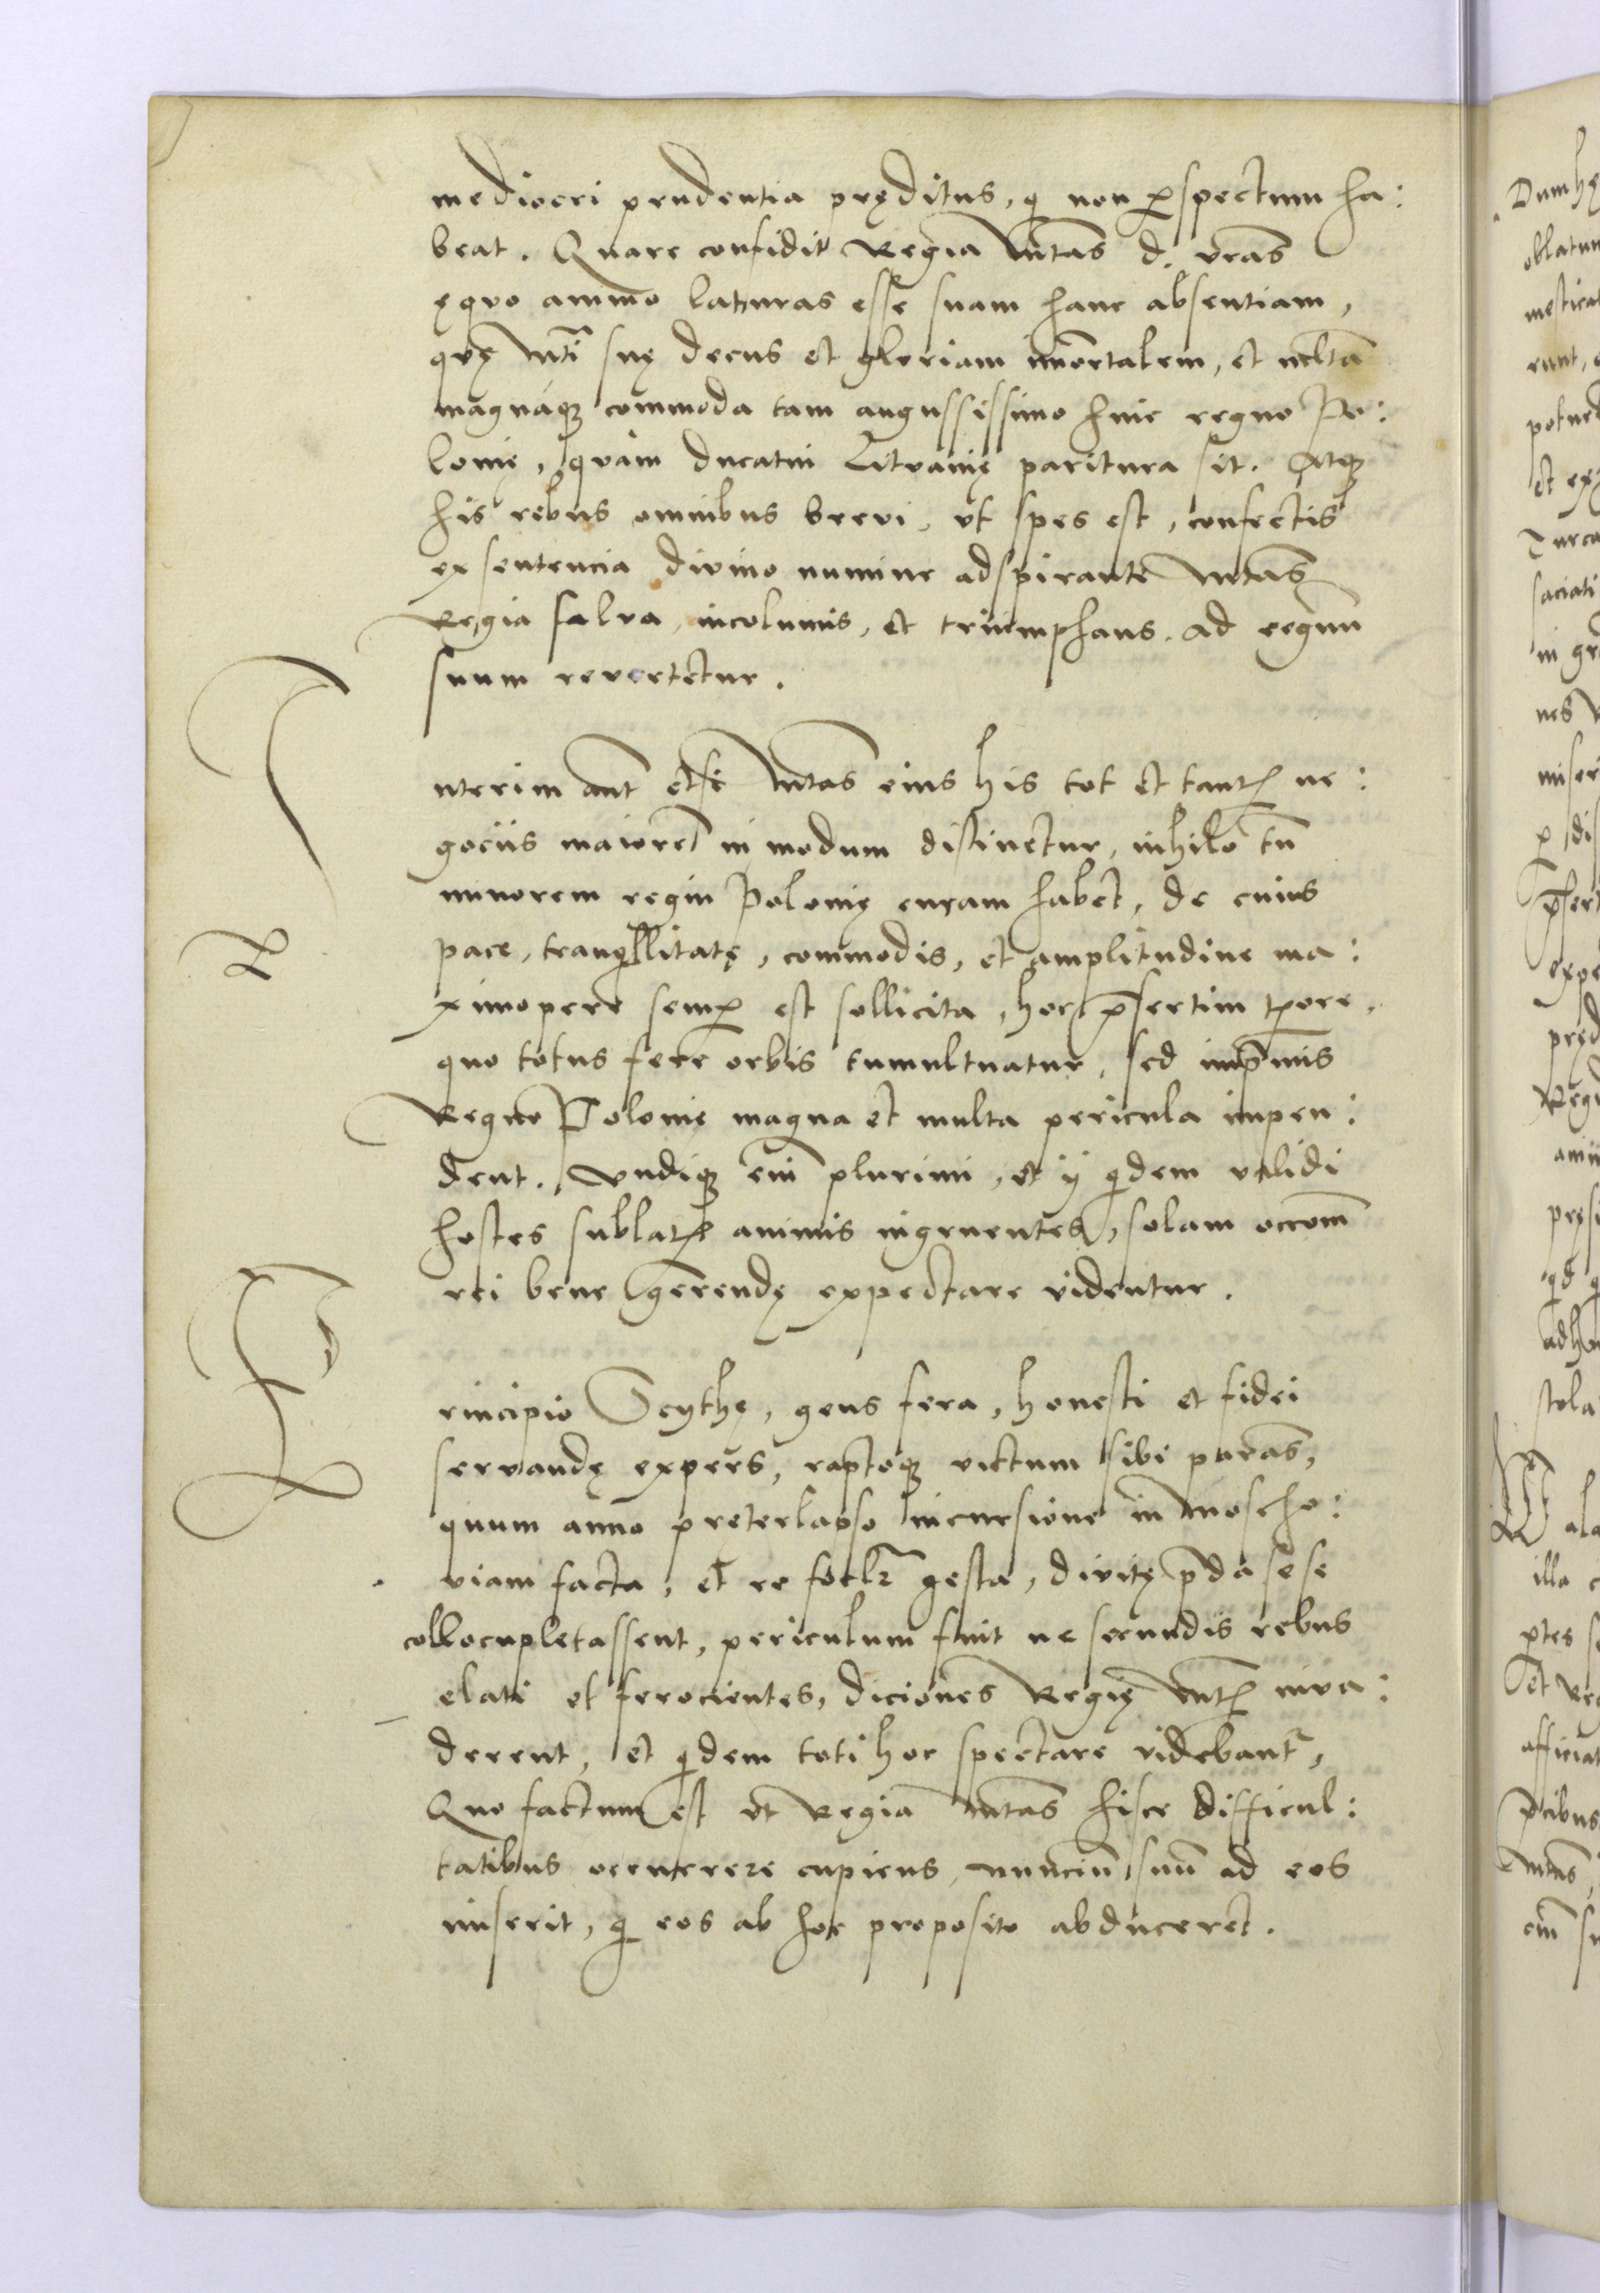 mediocri prudentia pręditus, q non ꝑspectum ha:
beat. Quare confidit Regia Mtas d. vras
ęquo animo laturas esse suam hanc absentiam,
quę Mti suę decus et gloriam im̄ortalem, et multa
magnáqꝫ commoda tam augustissimo huic regno Po:
lonię, quàm ducatui Lituanię paritura sit. Atqꝫ
his rebus omnibus brevi, vt spes est, confectis
ex sentencia divino numine adspirante Mtas
Regia salva, incolumis, et triumphans ad regnum
suum revertetur.
Interim aut etsi Mtas eius his tot et tantis ne:
gociis maiorem in modum distinetur, nihilo tn
minorem regni Polonię curam habet, de cuius
pace, tranqllitatę, commodis, et amplitudine ma:
ximopere semꝑ est sollicita, hoc p̄sertim tpore,
quo totus fere orbis tumultuatur, sed imp̄mis
Regno Polonię magna et multa pericula impen:
dent. Vndiqꝫ em̄ plurimi, et ij qdem validi
hostes sublatis animis ingruentes, solam occom̄
rei bene gerendę expectare videntur.
Principio Scythę, gens fera, honesti et fidei
servandę expers, raptoqꝫ victum sibi parās,
quum anno preterlapso incursione in Moscho:
viam facta, et re foelr gesta, divitę p̄da sese
collocupletassent, periculum fuit ne secundis rebus
elati et ferocientes, diciones Regię Mtis inva:
derent, et qdem toti hoc spectare videbantr,
Quo factum est vt Regia Mtas hisce difficul:
tatibus occurrere cupiens, nunciū suū ad eos
miserit, q eos ab hoc proposito abduceret.